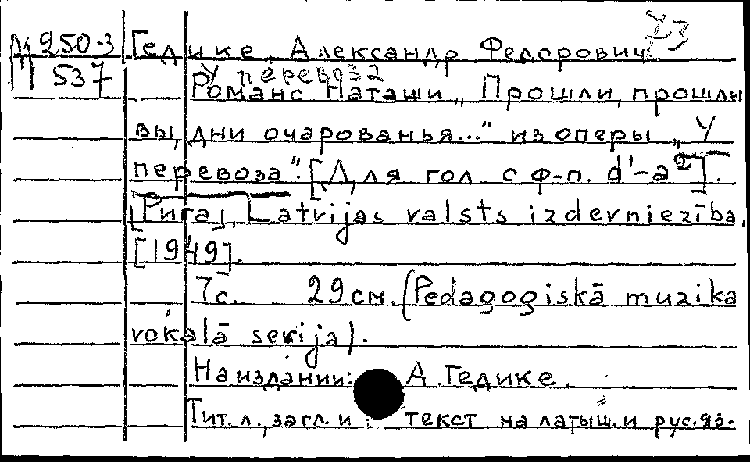 М 250-3 Гедике, Александр Федорович 23
537 У перевоза
Романс Наташи „Прошли, прошли
вы, дни очарованья..." из оперы „У
перевоза". [Для гол. с ф-п. d'-a²].
[Рига], Latvijas valsts izdevniezība,
[1949].
7с. 29см. (Pedagogiskā muzika
vokalā serija).
На издании: А. Гедике.
Тит. л., загл. и текст на латыш. и рус. яз.